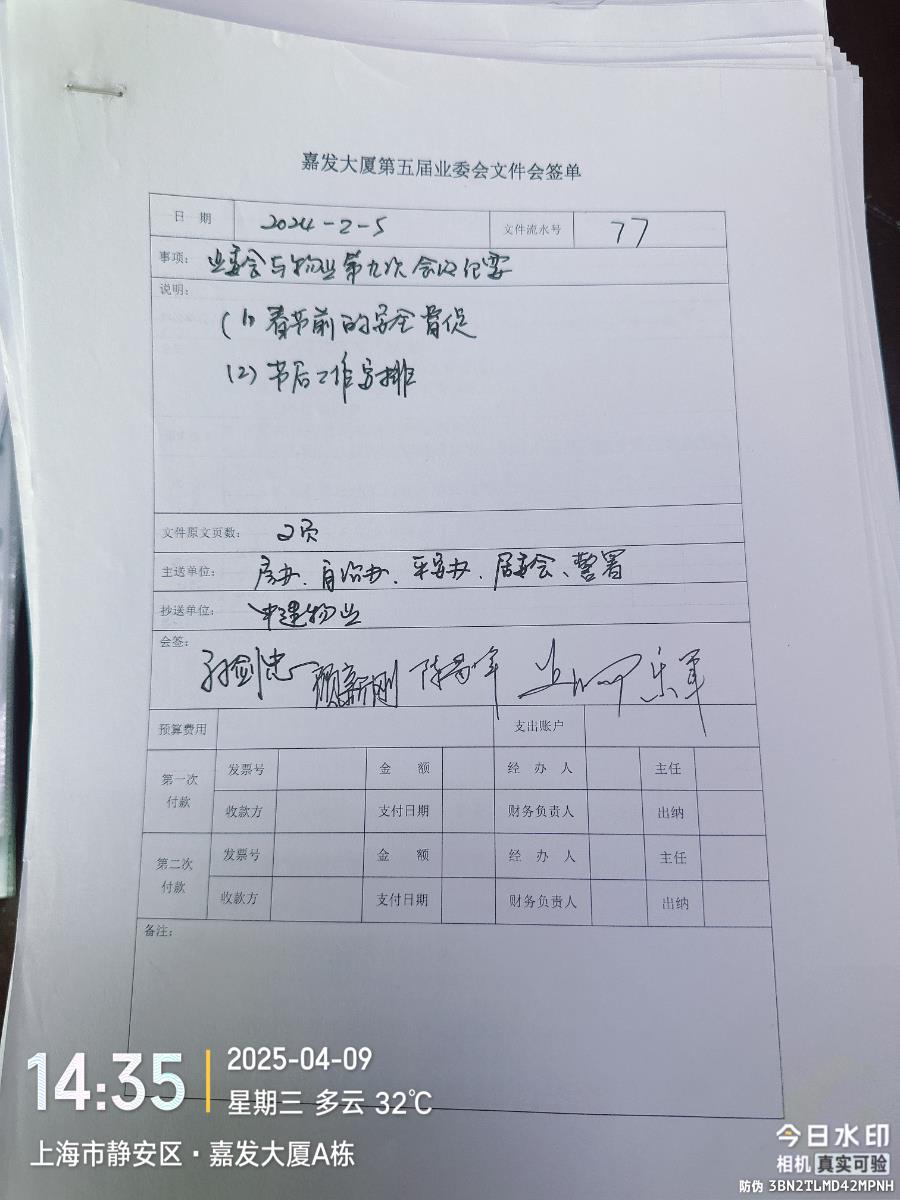 嘉发大厦第五届业委会文件会签单
日 期 2024-2-5 文件流水号 77
事项: 业委会与物业第九次会议纪要
说明:
(1) 春节前的安全督促
(2) 节后工作安排
文件原文页数: 2页
主送单位: 房办、自治办、平安办、居委会、警署
抄送单位: 中建物业
会签:
孙剑忠 顾新刚 陈 乐军
预算费用 支出账户
第一次付款 发票号 金 额 经 办 人 主任
收款方 支付日期 财务负责人 出纳
第二次付款 发票号 金 额 经 办 人 主任
收款方 支付日期 财务负责人 出纳
备注:
14:35 2025-04-09
星期三 多云 32℃
上海市静安区·嘉发大厦A栋
今日水印
相机 真实可验
防伪 3BN2TLMD42MPNH